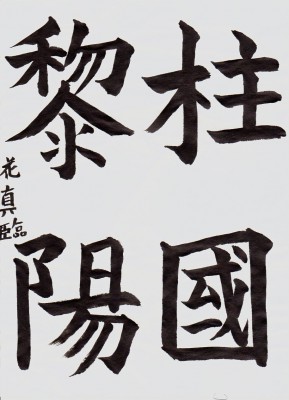 柱國
黎陽
花真臨